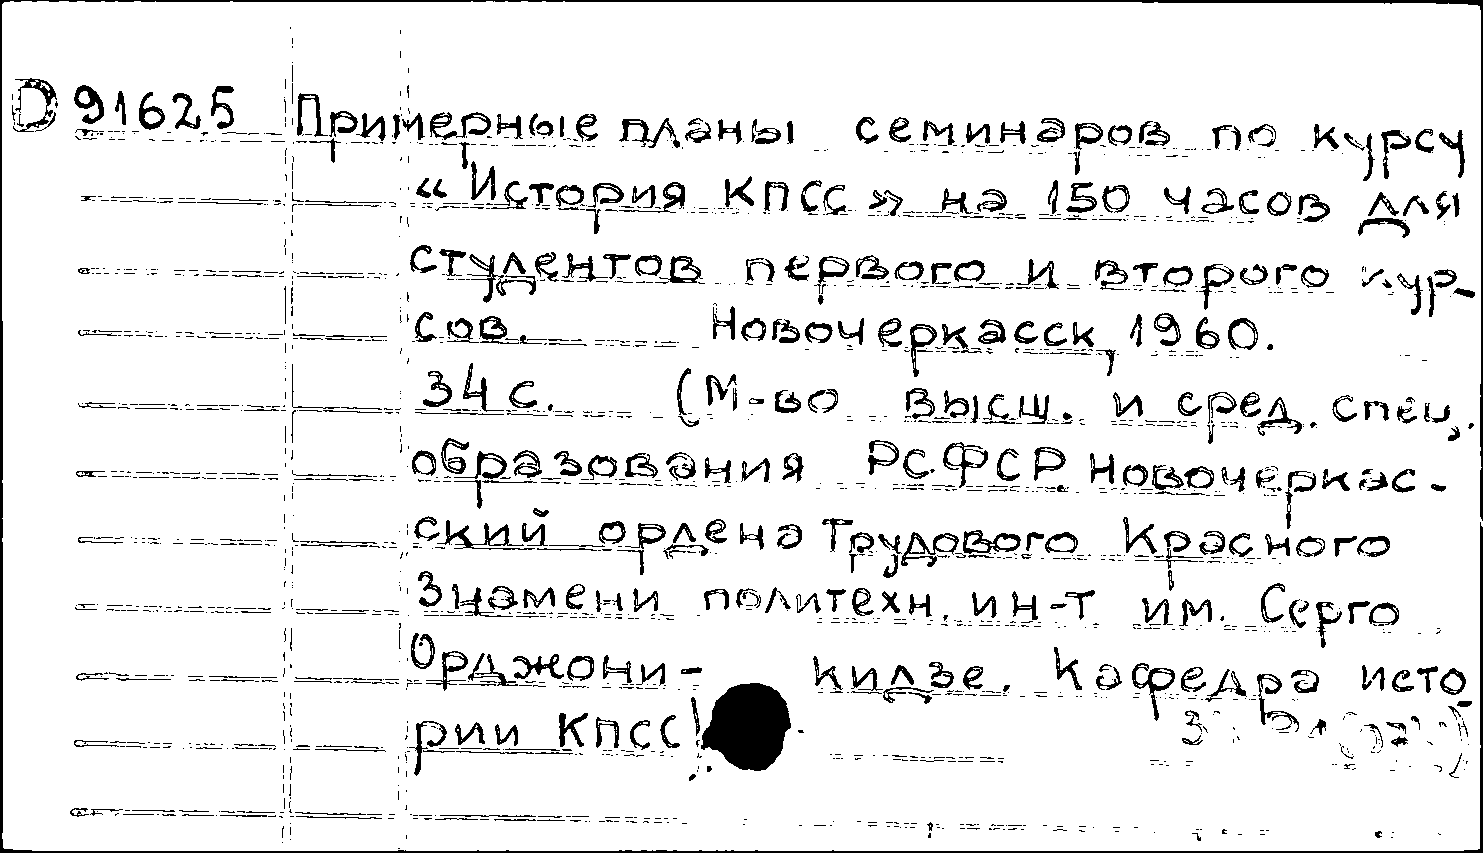 D 91625 Примерные планы семинаров по курсу
"История КПСС" на 150 часов для
студентов первого и второго кур-
сов. Новочеркасск, 1960.
34 с. (М-во высш. и сред. спец.
образования РСФСР. Новочеркас-
ский ордена Трудового Красного
Знамени политехн. ин-т им. Серго
Орджони- кидзе. Кафедра исто
рии КПСС).